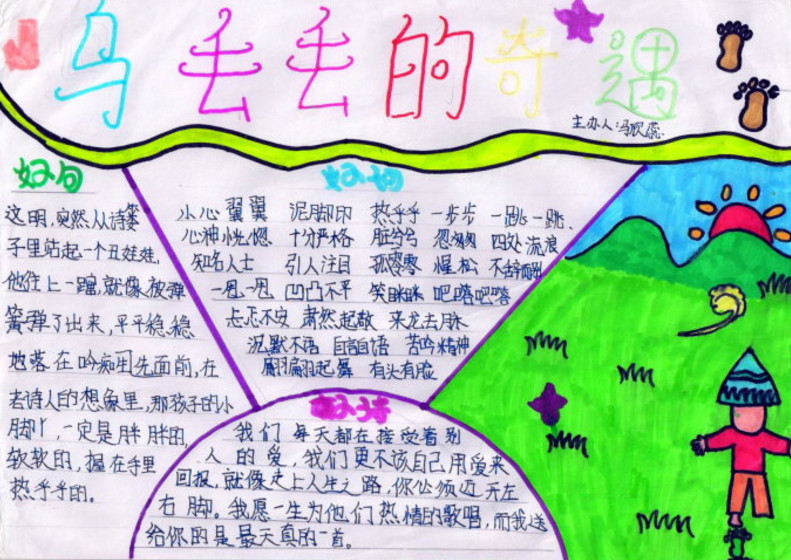 乌丢丢的奇遇
主办人:马欣蕊
好句
这时,突然从诗篓
子里站起一个丑娃娃,
他往上一蹿,就像被弹
簧弹了出来,平平稳稳
地落在吟痴老先面前,在
去诗人的想象里,那孩子的小
脚丫,一定是胖胖的,
软软的,握在手里
热乎乎的。
好词
小心翼翼 泥脚印 热乎乎 一步步 一跳一跳
心神恍惚 十分严格 脏兮兮 忽匆匆 四处流浪
知名人士 引人注目 孤零零 惺松
一甩一甩 凹凸不平 笑眯眯 吧嗒吧嗒
忐忑不安 肃然起敬 来龙去脉
沉默不语 自言自语 苦吟精神
翩翩起舞 有头有脸
好诗
我们每天都在接受着别
人的爱,我们更不该自己用爱来
回报,就像走上人生之路,你必须迈开左
右脚。我愿一生为他们热情的歌唱,而我送
给你的是最天真的一首。